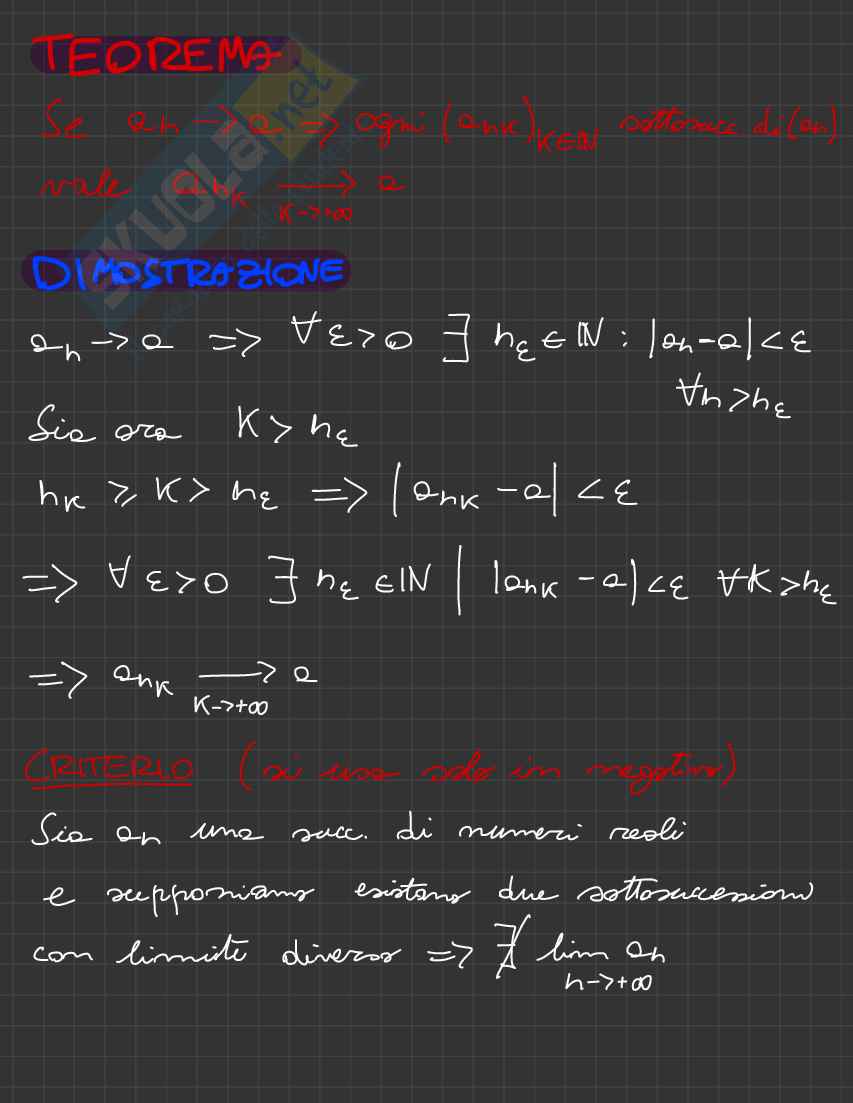 TEOREMA
Se an → a => ogni (ank)K∈N sottosucc di (an)
vale ank → a
K->+∞
DIMOSTRAZIONE
an → a => ∀ ε>0 ∃ nε ∈ N : |an-a|<ε
∀n>nε
Sia ora K > nε
nK ⩾ K > nε => |ank - a| < ε
=> ∀ ε>0 ∃ nε ∈ N | |ank - a|<ε ∀K>nε
=> ank → a
K->+∞
CRITERIO (si usa solo in negativo)
Sia an una succ. di numeri reali
e supponiamo esistano due sottosuccessioni
con limite diverso => ∄ lim an
n->+∞
SKUOLA.net